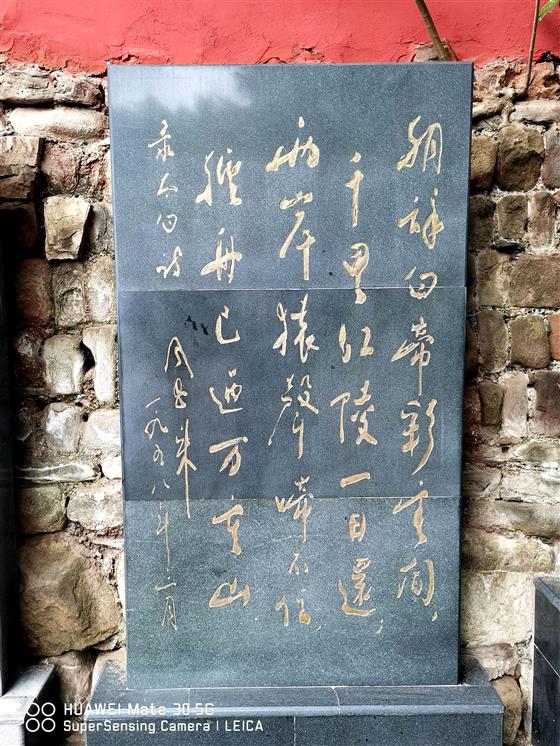 朝辞白帝彩云间，
千里江陵一日還，
两岸猿聲啼不住，
轻舟已过万重山
录太白诗
周恩来
一九五八年
HUAWEI Mate 30 5G
SuperSensing Camera | LEICA